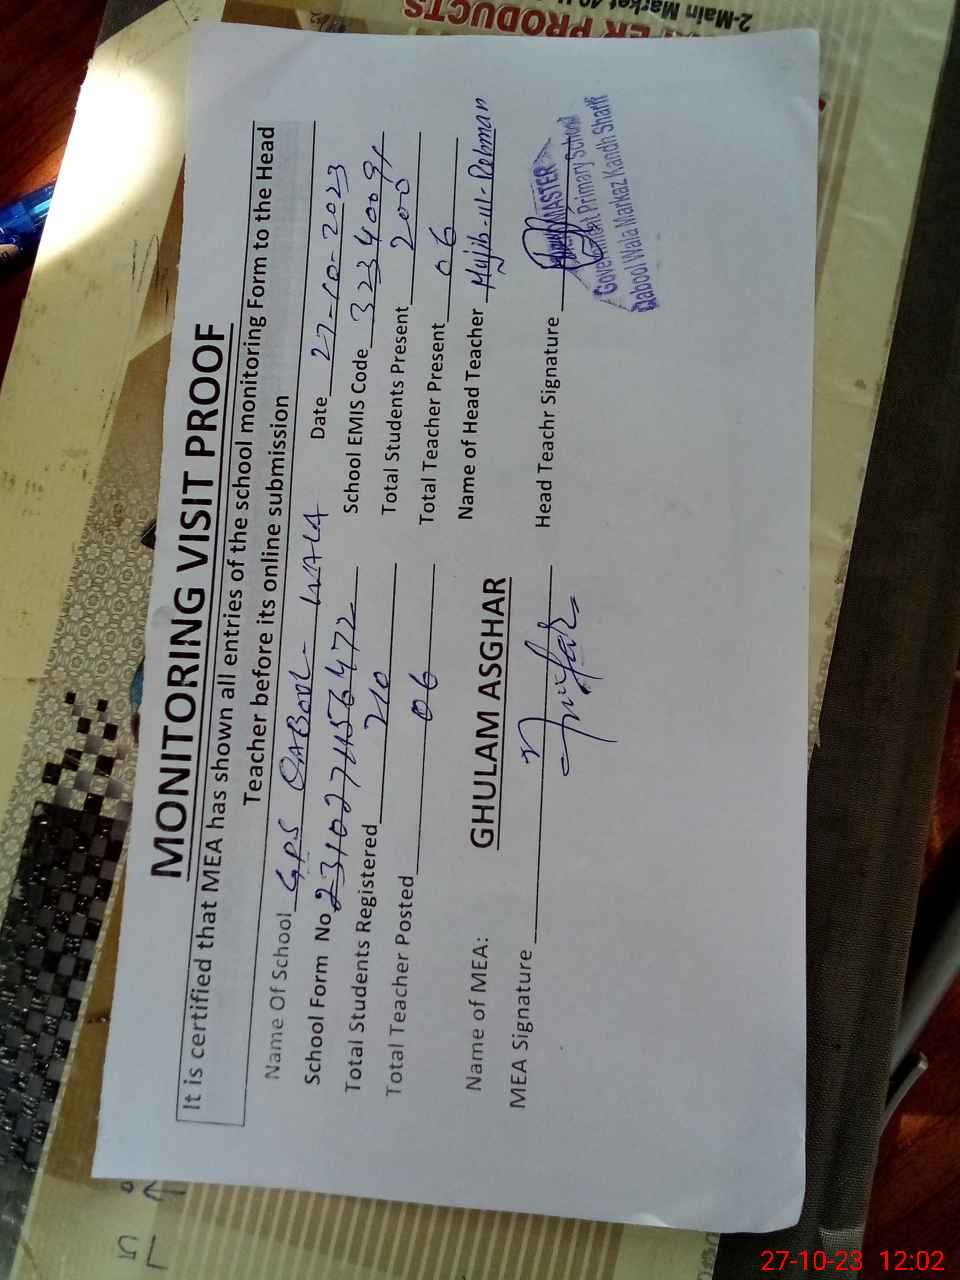 MONITORING VISIT PROOF
It is certified that MEA has shown all entries of the school monitoring Form to the Head
Teacher before its online submission
Name Of School GPS QABOOL WALA Date 27-10-2023
School Form No School EMIS Code 32340091
Total Students Registered 210 Total Students Present 200
Total Teacher Posted 06 Total Teacher Present 06
Name of Head Teacher Mujib-Ul-Rehman
Name of MEA: GHULAM ASGHAR
MEA Signature Head Teachr Signature
MASTER
Government Primary School
Qabool Wala Markaz Kandh Sharif
PRODUCTS
2-Main Market
27-10-23 12:02